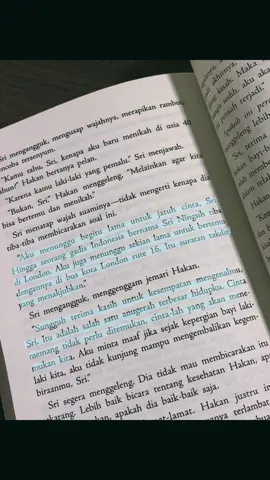 Sri mengangguk, mengusap wajahnya, merapikan rambut,
mencoba tersenyum.
"Kamu tahu, Sri, kenapa aku baru menikah di usia 40
tahun?" Hakan bertanya pelan.
"Karena kamu laki-laki yang pemalu." Sri menjawab.
"Bukan, Sri." Hakan menggeleng, "Melainkan agar kita
bisa bertemu dan menikah."
Sri menatap wajah suaminya—tidak mengerti kenapa dia
tiba-tiba membicarakan soal ini.
"Aku menunggu begitu lama untuk jatuh cinta, Sri.
Hingga, seorang gadis Indonesia bernama Sri Ningsih tiba
di London. Aku juga menunggu sekian lama untuk bertemu
dengannya di bus kota London rute 16. Itu suratan takdir
yang menakjubkan."
Sri mengangguk, menggenggam jemari Hakan.
"Sungguh terima kasih untuk kesempatan mengenalmu,
Sri. Itu adalah salah satu anugerah terbesar hidupku. Cinta
memang tidak perlu ditemukan, cinta-lah yang akan mene-
mukan kita. Aku minta maaf jika sejak kepergian bayi laki-
laki kita, aku tidak kunjung mampu mengembalikan kegem-
biraanmu, Sri."
Sri segera menggeleng. Dia tidak mau membicarakan itu
sekarang. Lebih baik bicara tentang kesehatan Hakan, apa
apakah dia baik-baik saja.
Hakan justru
terlambat